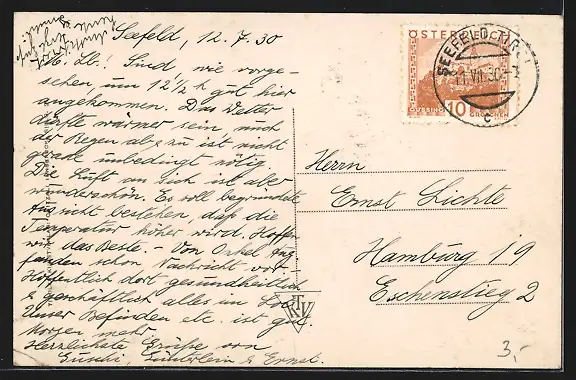 Seefeld, 12. 7. 30
M. Lb.! Sind, wie vorge-
sehen, um 12 1/2 h gut hier
angekommen. Das Wetter
dürfte wärmer sein, auch
der Regen ab & zu ist nicht
gerade unbedingt nötig.
Die Luft an sich ist aber
wunderschön. Es soll begründete
Aussicht bestehen, daß die
Temperatur höher wird. Hoffen
wir das Beste. - Von Onkel
fanden schon Nachricht vor.
Hoffentlich dort gesundheitlich
& geschäftlich alles im
Unser Befinden etc. ist gut.
Morgen mehr.
Herzlichste Grüße von
Guschi, & Ernst.
ÖSTERREICH
GÜSSING
10
GROSCHEN
SEEFELD, TIROL
11.VII.30
c
Herrn
Ernst Lichte
Hamburg 19
Eschenstieg 2
RTV
3,-